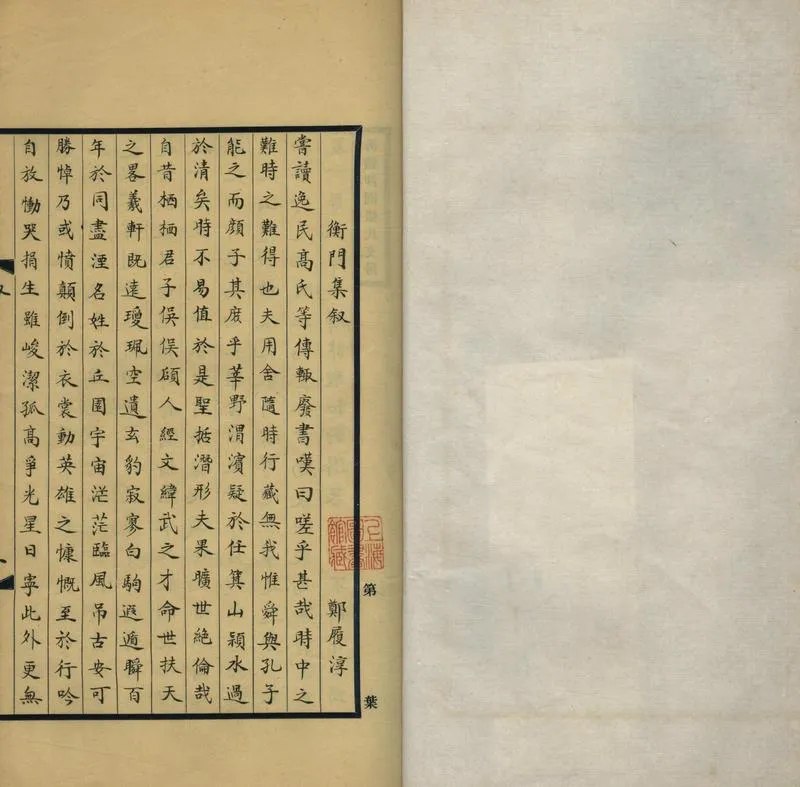 衡門集叙 鄭履淳
嘗讀逸民髙氏等傳輙廢書嘆曰嗟乎甚哉時中之
難時之難得也夫用舍隨時行藏無我惟舜與孔子
能之而顔子其庶乎莘野渭濱疑於任箕山潁水過
於清矣時不易值於是聖括潛形夫果曠世絶倫哉
自昔栖栖君子俁俁碩人經文緯武之才命世扶天
之畧羲軒既遠瓊珮空遺玄豹寂寥白駒遐遁瞬百
年於同盡湮名姓於丘園宇宙茫茫臨風吊古安可
勝悼乃或憤顛倒於衣裳動英雄之慷慨至於行吟
自放慟哭捐生雖峻潔孤高爭光星日寧此外更無
第
葉
上海圖書館藏